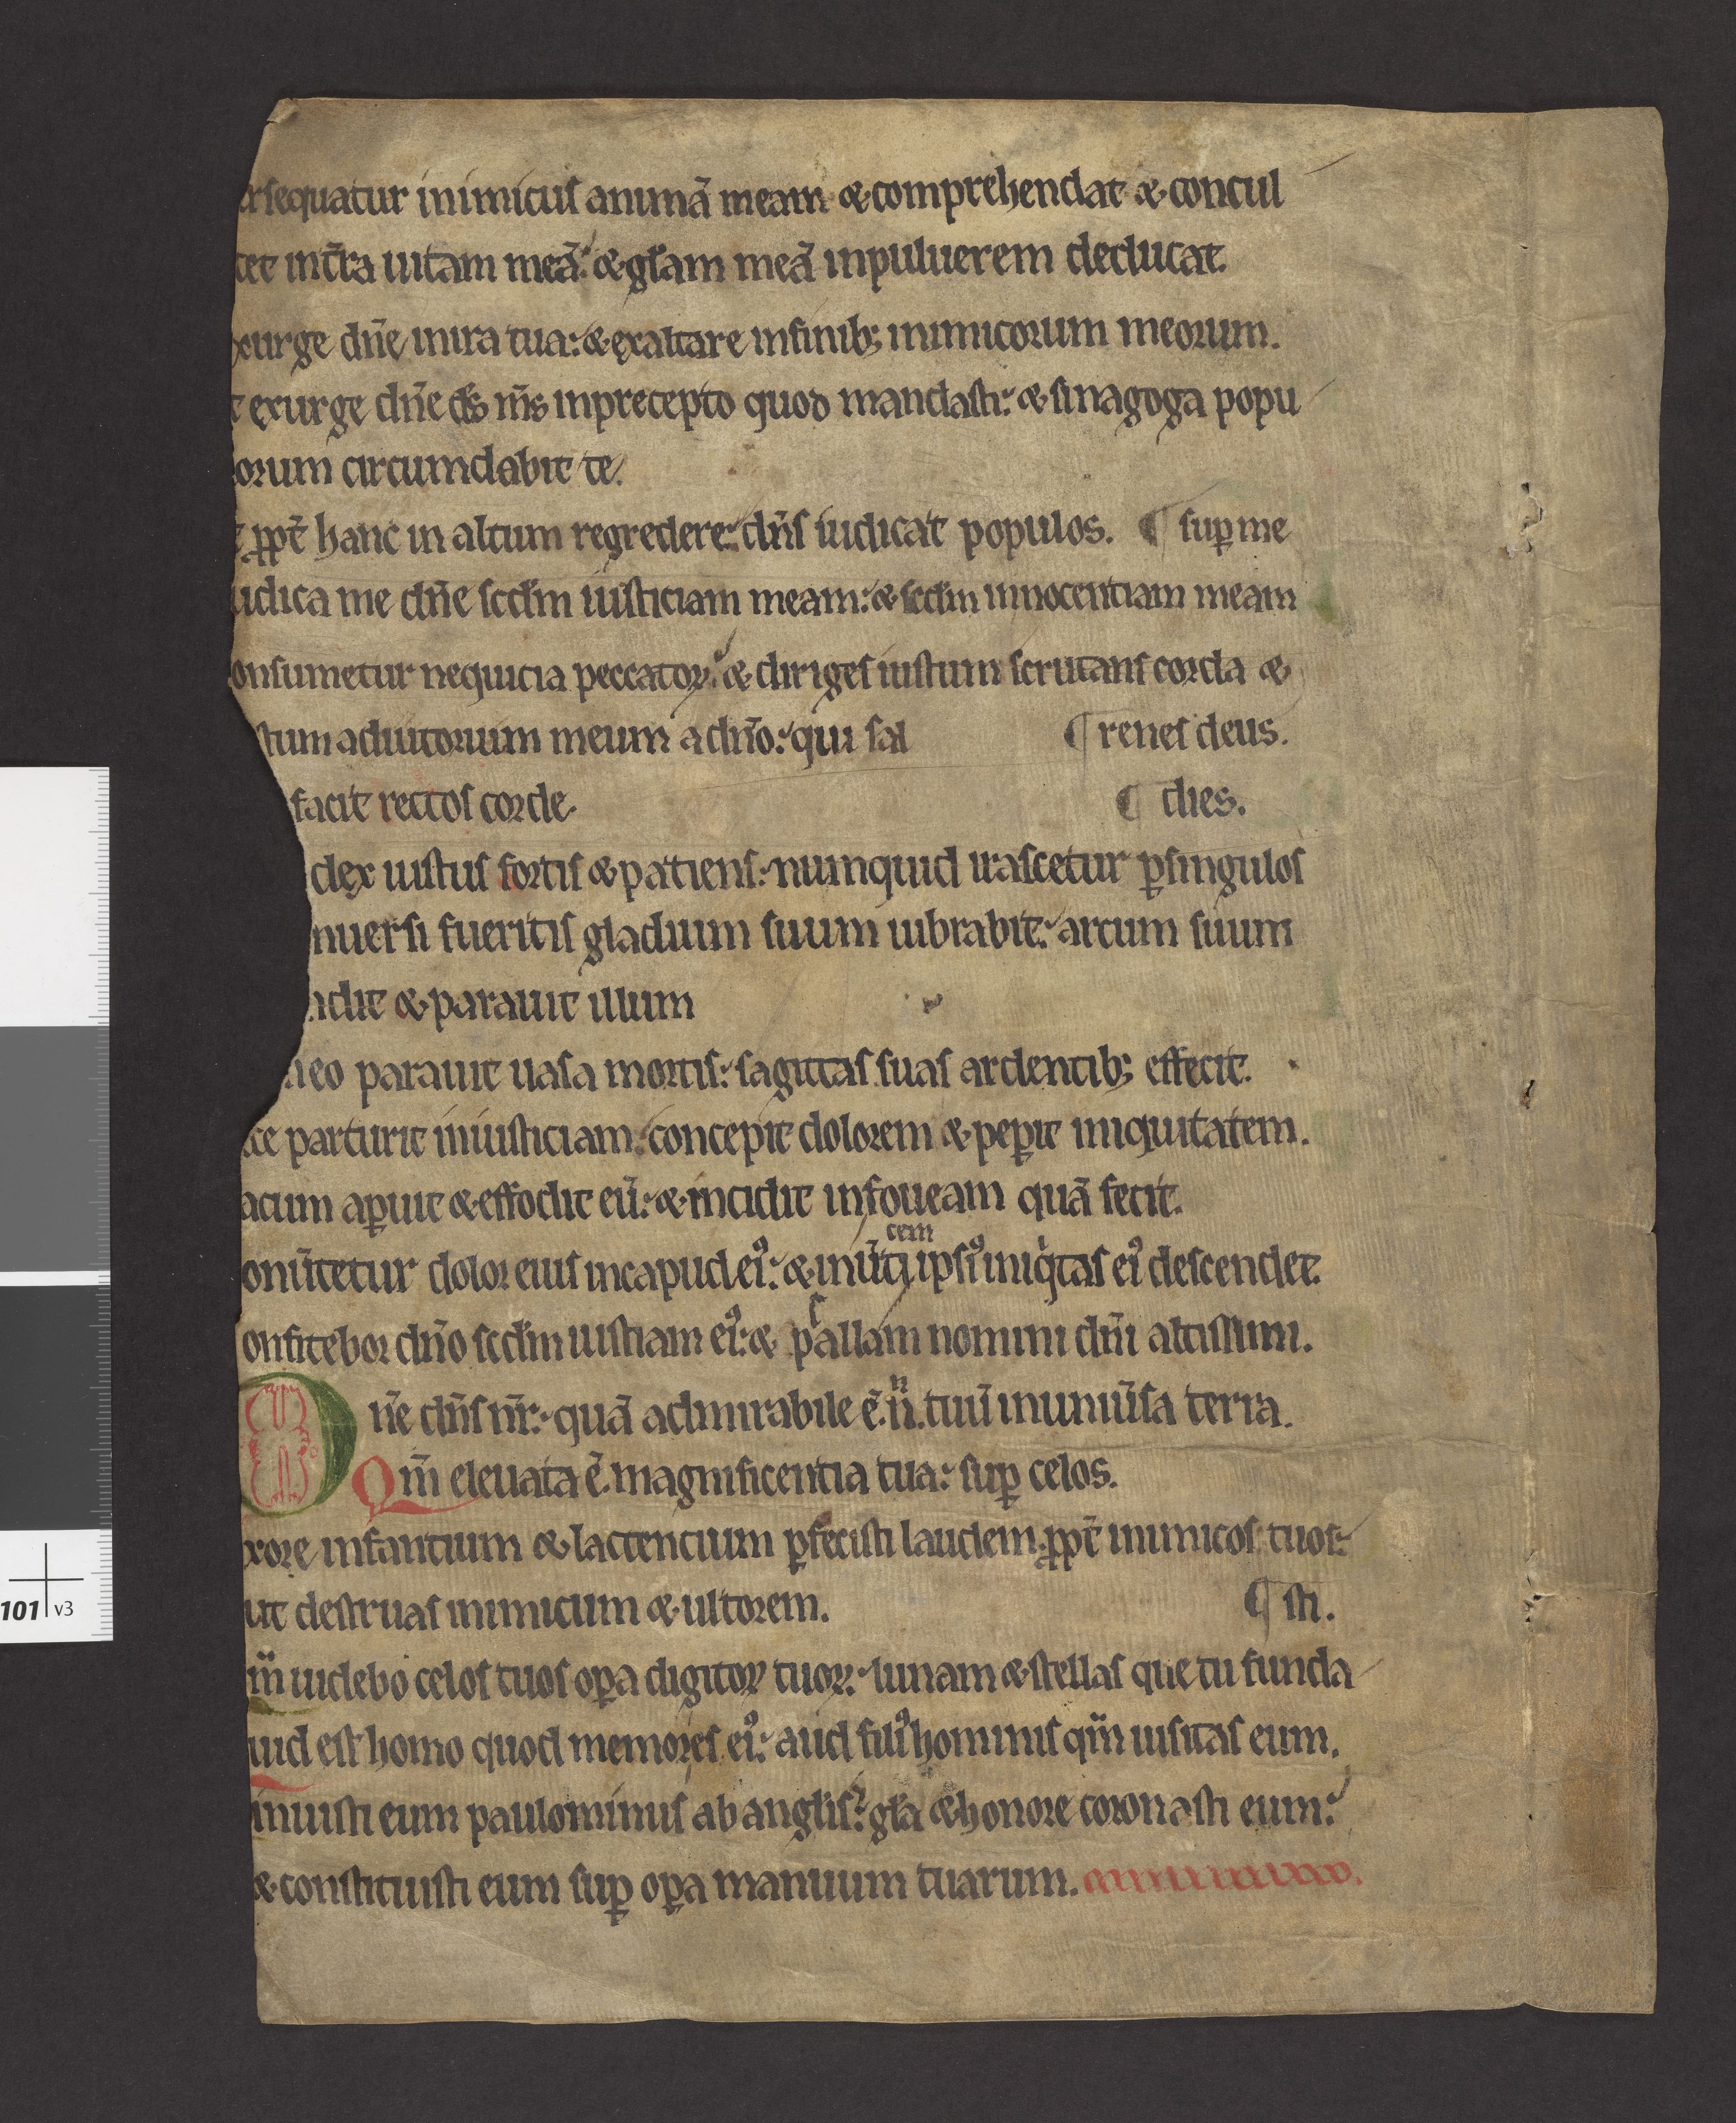 ersequatur inimicus animā meam & comprehendat & concul
cet int̄ra uitam meā: & gl̄am meā inpuluerem deducat.
xurge dn̄e inira tua: & exaltare infinib; inimicorum meorum.
t exurge dn̄e ds̄ m̄s inprecepto quod mandasti: & sinagoga popu
lorum circumdabit te.
t ꝓpt̄ hanc in altum regredere: dn̄s iudicat populos. ¶ suꝑ me
udica me dn̄e scd̄m iusticiam meam: & scd̄m innocentiam meam
onsumetur nequicia peccatoꝝ: & diriges iustum scrutans corda &
stum adiutorium meum a dn̄o: qui sal ¶ renes deus.
facit rectos corde. ¶ dies.
dex iustus fortis & patiens: numquid irascetur ꝑsingulos
nuersi fueritis gladium suum uibrabit: arcum suum
ndit & parauit illum
n eo parauit uasa mortis: sagittas suas ardentib; effecit.
cce parturit iniusticiam: concepit dolorem & peꝑit iniquitatem.
acum aꝑuit & effodit eū: & incidit infoueam quā fecit.
cem
onūtetur dolor eius incapud ei᷒: & inūti ipsi᷒ iniq̇tas ei᷒ descendet.
onfitebor dn̄o scd̄m iustiam ei᷒: & psallam nomini dn̄i altissimi.
Dn̄e dn̄s nr̄: quā admirabile ē. n̄. tuū inuniūsa terra.
Qm̄ eleuata ē. magnificentia tua: suꝑ celos.
xore infantium & lactencium ꝑfecisti laudem ꝓpt̄ inimicos tuos:
ut destruas inimicum & ultorem. ¶ sti.
m̄ uidebo celos tuos oꝑa digitoꝝ tuoꝝ: lunam & stellas que tu funda
uid est homo quod memores ei᷒: aud fili᷒ hominis qm̄ uisitas eum.
inuisti eum paulominus ab angl̄is: gl̄a & honore coronasti eum:
& constituisti eum suꝑ oꝑa manuum tuarum.
101 v3